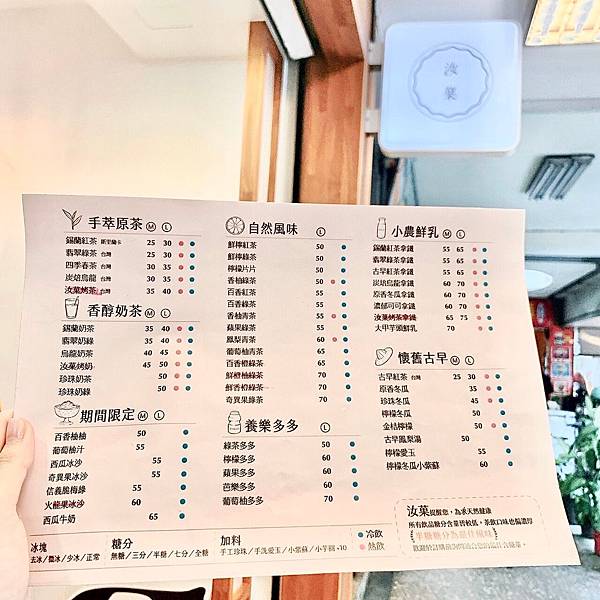 汝菓
手萃原茶 M L
錫蘭紅茶 斯里蘭卡 25 30
翡翠綠茶 台灣 25 30
四季春茶 台灣 30 35
炭焙烏龍 台灣 30 35
汝菓烤茶 台灣 35 40
香醇奶茶 M L
錫蘭奶茶 35 40
翡翠奶綠 35 40
烏龍奶茶 40 45
汝菓烤奶 45 50
珍珠奶茶 50
珍珠奶綠 50
期間限定 M L
百香柚柚 50
葡萄柚汁 55
西瓜冰沙 55
奇異果冰沙 55
信義脆梅綠 55
火龍果冰沙 60
西瓜牛奶 65
自然風味 L
鮮檸紅茶 50
鮮檸綠茶 50
檸檬片片 50
香柚綠茶 50
百香紅茶 55
百香綠茶 55
香柚青茶 55
蘋果綠茶 55
鳳梨青茶 60
葡萄柚青茶 65
百香橙綠茶 65
鮮橙柚綠茶 70
鮮香橙綠茶 70
奇異果綠茶 70
養樂多多 L
綠茶多多 50
檸檬多多 60
蘋果多多 60
芭樂多多 60
葡萄柚多多 70
小農鮮乳 M L
錫蘭紅茶拿鐵 55 65
翡翠綠茶拿鐵 55 65
古早紅茶拿鐵 55 65
炭焙烏龍拿鐵 60 70
原香冬瓜拿鐵 60 70
濃郁可可拿鐵 60 70
汝菓烤茶拿鐵 65 75
大甲芋頭鮮乳 70
懷舊古早 M L
古早紅茶 台灣 25 30
原香冬瓜 35
珍珠冬瓜 45
檸檬冬瓜 50
金桔檸檬 50
古早鳳梨湯 50
檸檬愛玉 55
檸檬冬瓜小紫蘇 60
汝菓提醒您，為求天然健康
所有飲品糖分含量皆較低，茶飲口味也偏濃厚
半糖糖分為最佳風味
冰塊
去冰/微冰/少冰/正常
糖分
無糖/三分/半糖/七分/全糖
加料
手工珍珠/手洗愛玉/小紫蘇/小芋圓 +10
冷飲
熱飲